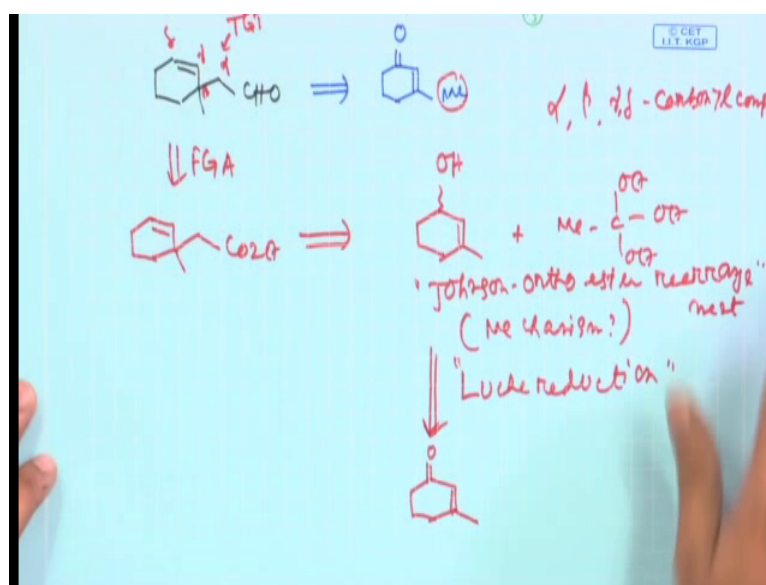 © CET
I.I.T. KGP
TGT
δ γ α
β CHO ⇒ O
Me
α, β, γ, δ - Carbonyl comp
FGA
OH
CO2Et ⇒ + Me - C - OEt
OEt
OEt
"Johnson-ortho ester rearrange
ment"
(Mechanism?)
"Luche reduction"
O